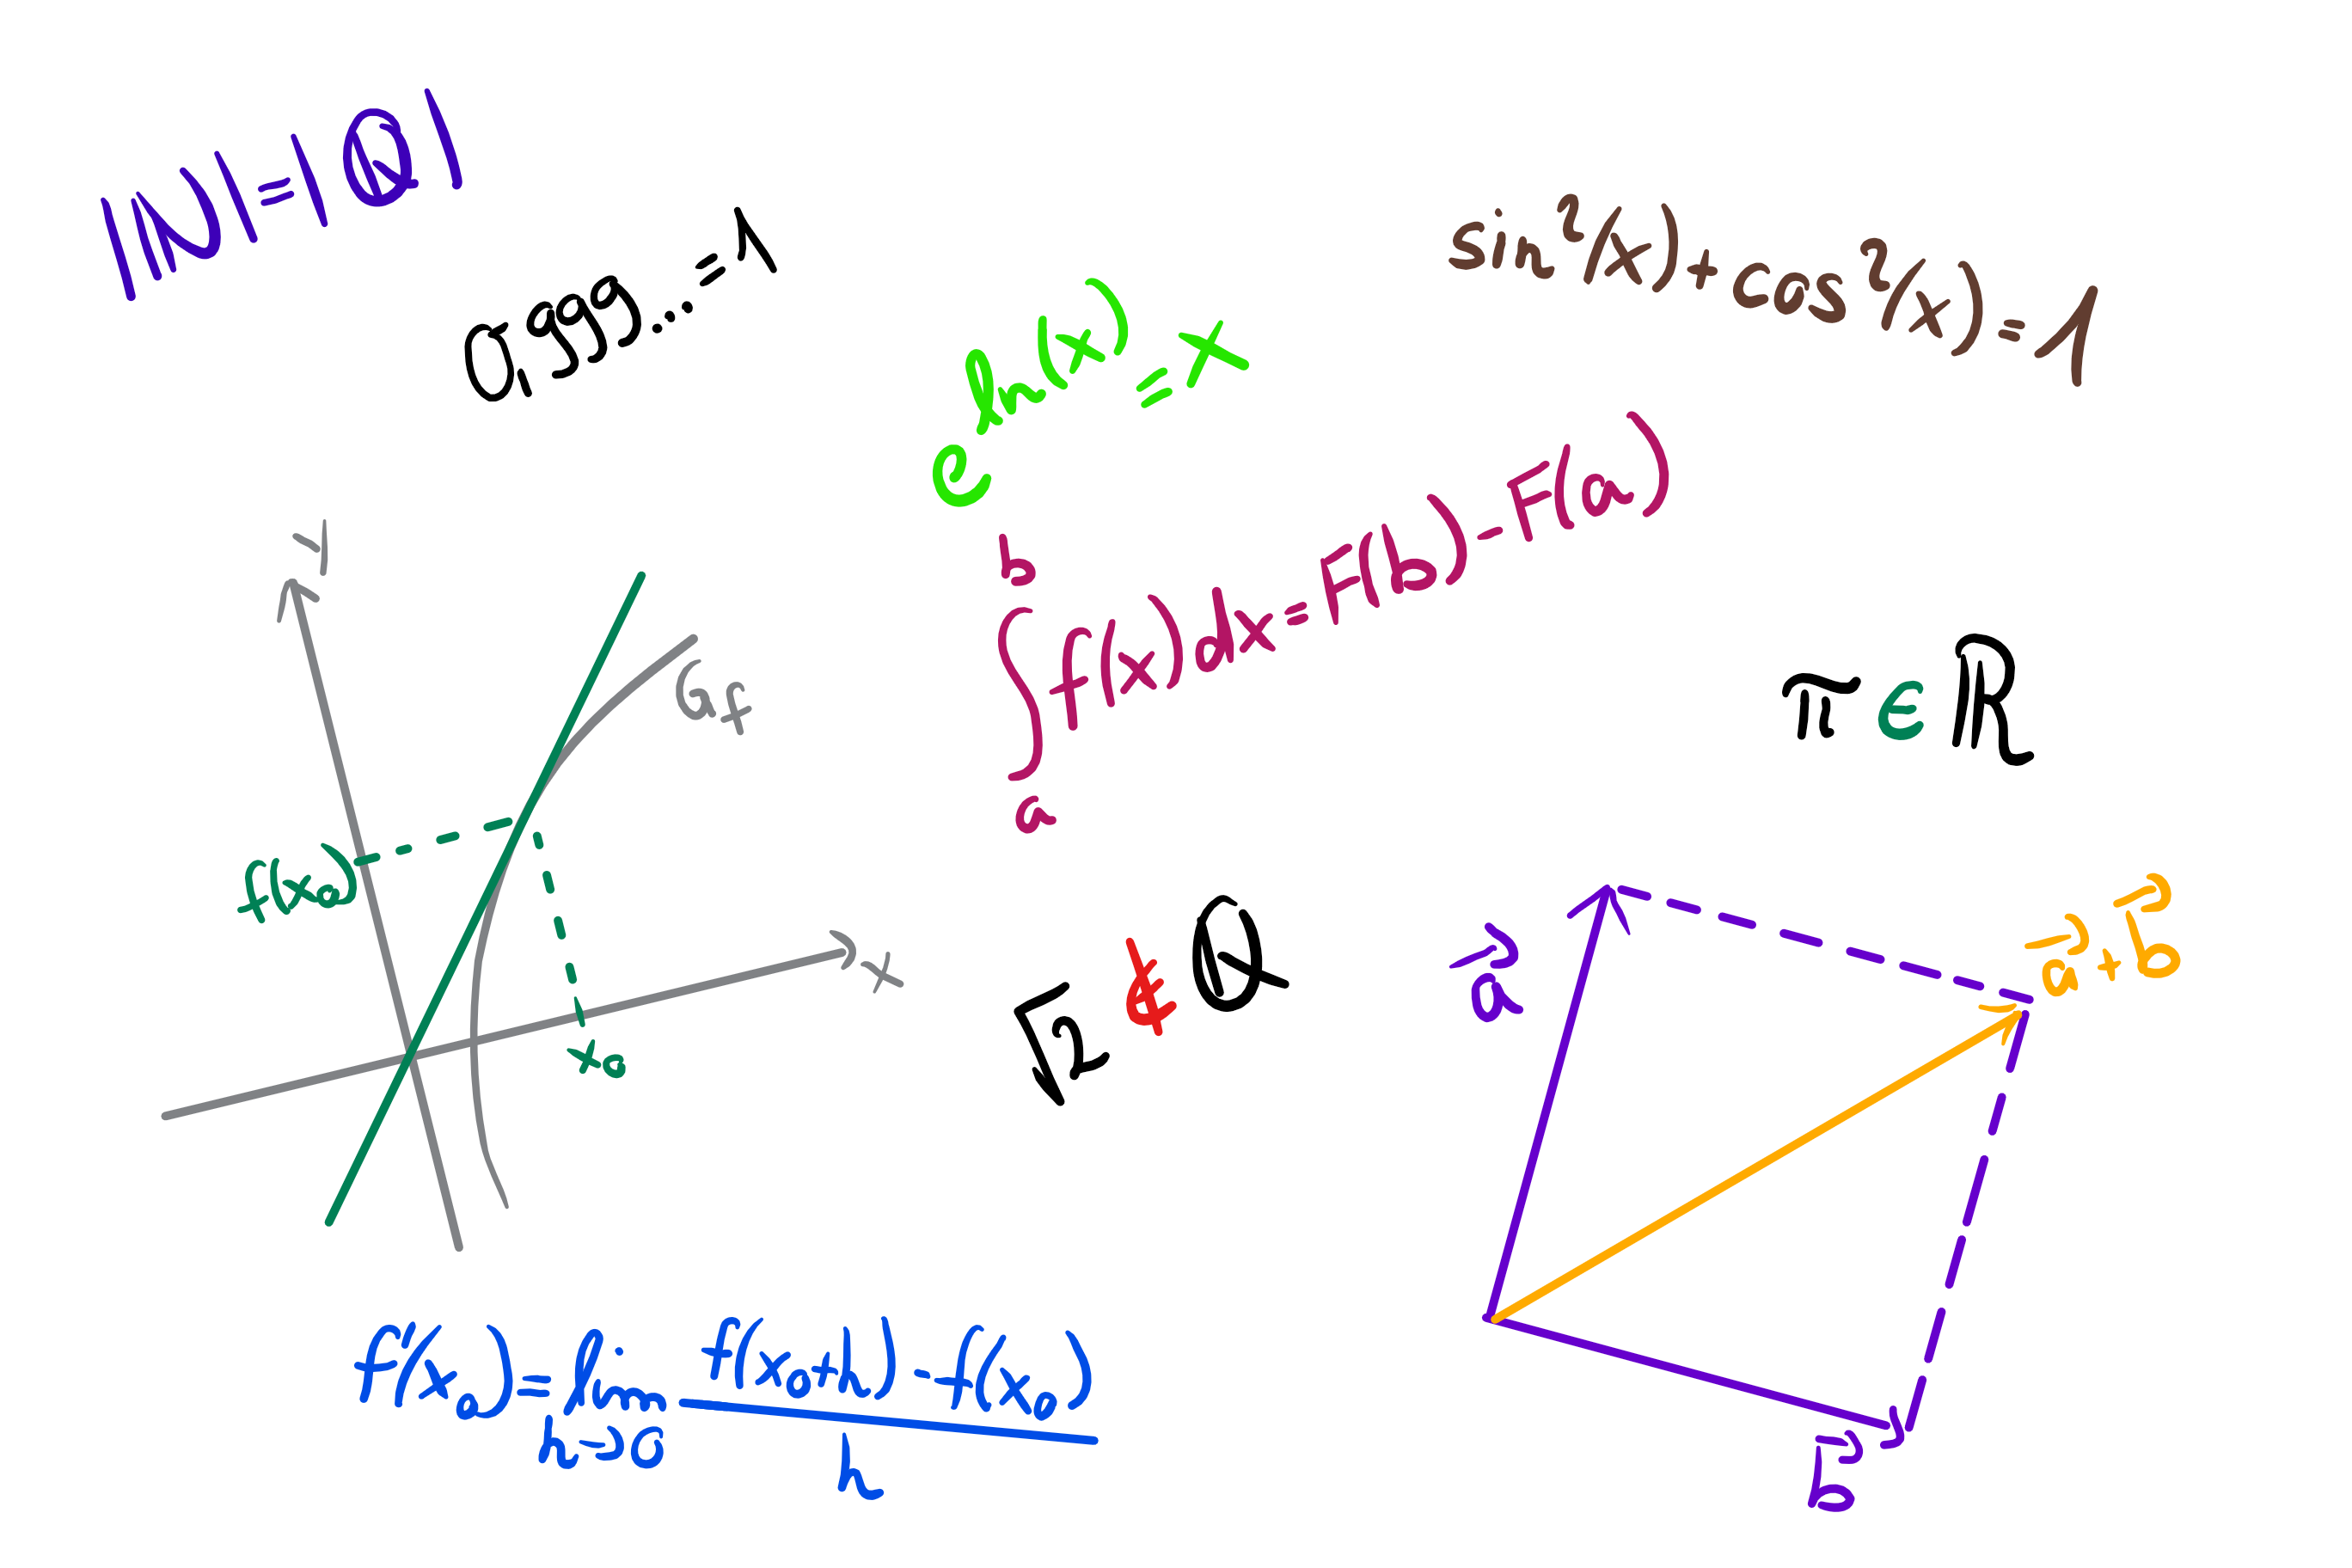 |ℕ|=|ℚ|
0,999...=1
sin²(x)+cos²(x)=1
e^ln(x)=x
∫_a^b f(x)dx=F(b)-F(a)
y
G_f
π∈ℝ
f(x₀)
x
x₀
√2∉ℚ
a⃗
a⃗+b⃗
f'(x₀)=lim_{h→0} (f(x₀+h)-f(x₀))/h
b⃗